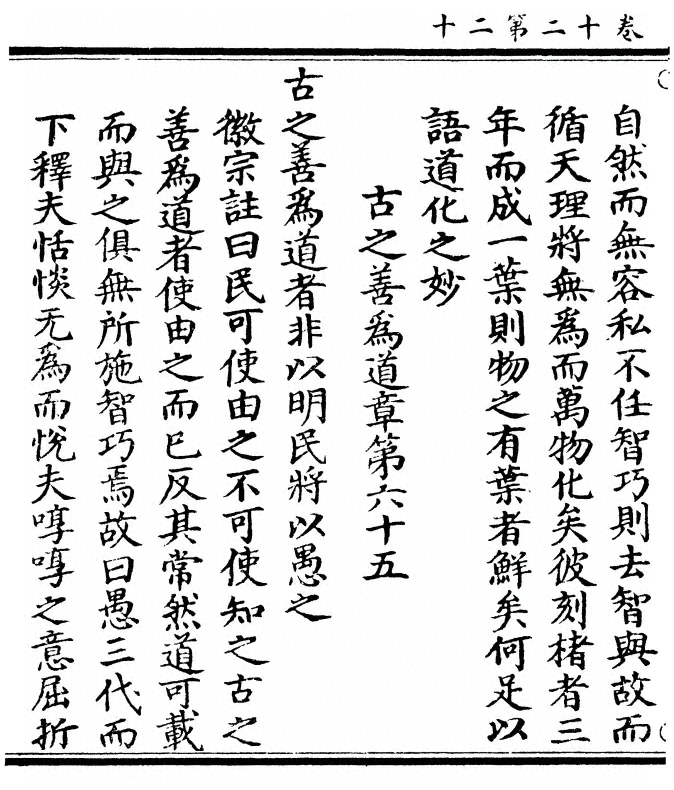 卷十二第二十
自然而無容私不任智巧則去智與故而
循天理將無爲而萬物化矣彼刻楮者三
年而成一葉則物之有葉者鮮矣何足以
語道化之妙
古之善爲道章第六十五
古之善爲道者非以明民將以愚之
徽宗註曰民可使由之不可使知之古之
善爲道者使由之而已反其常然道可載
而與之俱無所施智巧焉故曰愚三代而
下釋夫恬惔无爲而悅夫啍啍之意屈折